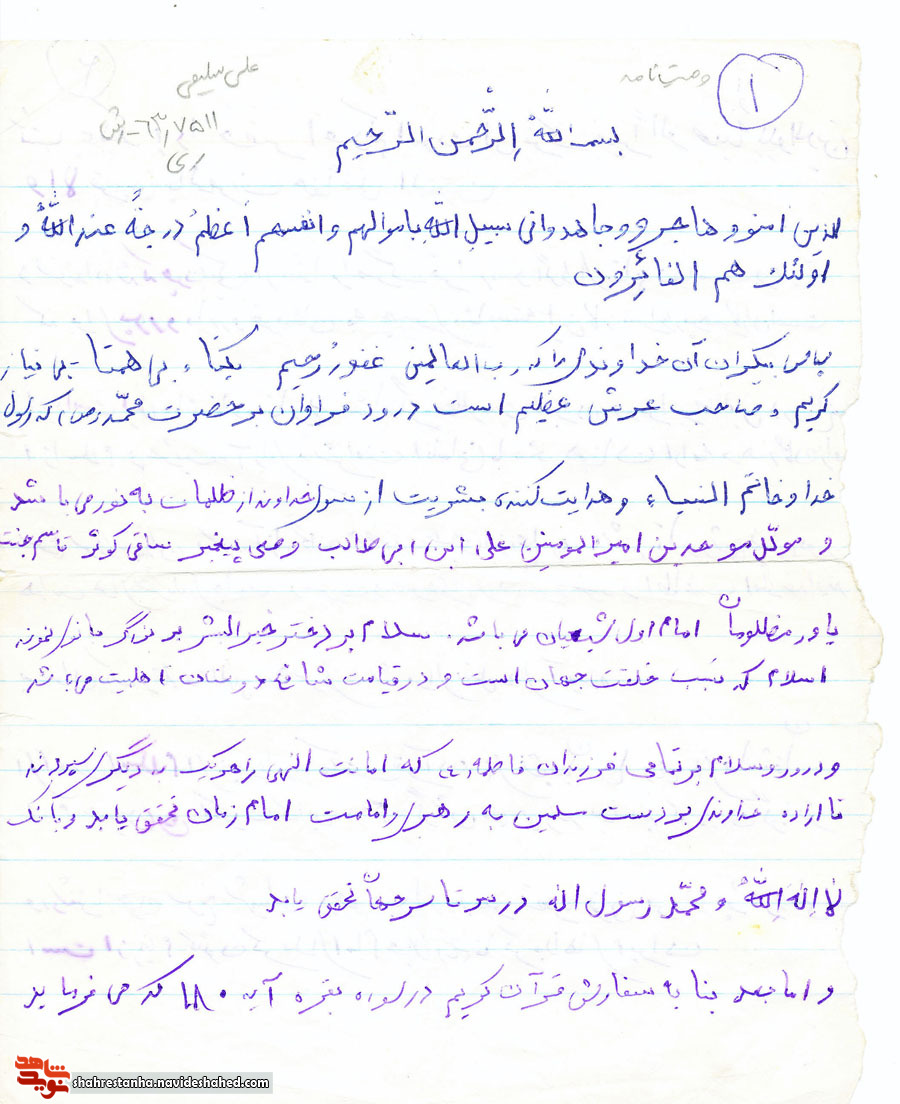 ۱
وصیت‌نامه
علی سلیمی
بسم اللهُ اِلرَّحمن الرَّحیم
الذین امنو و هاجرو و جاهدوا فی سبیل اللهِ باموالهم و انفسهم اَعظمُ درجةً عند اللهُ و
اولئک هم الفائِزون
سپاس بیکران آن خداوندی را که رب العالمین غفورُ رحیم یکتاء بی همتا بی نیاز
کریم و صاحب عرش عظیم است درود فراوان بر حضرت محمّد (ص) که رسول
خدا و خاتم النبیاء و هدایت کننده بشریت از سوی خداوند از ظلمات به نور می باشد
و مولّی موحدین امیرالمومنین علی ابن ابی طالب وصی پیغمبر ساقی کوثر قاسم جنت
یاور مظلومان امام اول شیعیان می باشد. سلام بر دختر خیرالبشر بزرگ بانوی نمونه
اسلام که سبب خلقت جهان است و در قیامت شافع دوستان اهلبیت می باشد
و درود و سلام بر تمامی فرزندان فاطمه که امانت الهی را هر یک به دیگری سپرده‌اند
تا اراده خداوندی بر دست مسلمین به رهبری و امامت امام زمان تحقق یابد و بانگ
لا اِلهَ اِللهُ و محمّد رسول الله در سرتاسر جهان تحقق یابد
و اما بعد بنا به سفارش قرآن کریم در سوره بقره آیه ۱۸۰ که می فرماید
شاهد
نوید
shahrestanha.navideshahed.com